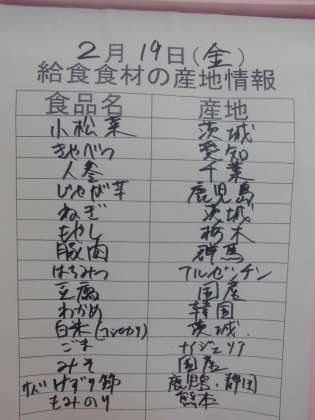 2月19日(金)
給食食材の産地情報
食品名 産地
小松菜 茨城
きゃべつ 愛知
人参 千葉
じゃが芋 鹿児島
ねぎ 茨城
もやし 栃木
豚肉 群馬
はちみつ アルゼンチン
豆腐 国産
わかめ 韓国
白米(コシヒカリ) 茨城
ごま ナイジェリア
みそ 国産
けずり節 鹿児島・静岡
もみのり 熊本